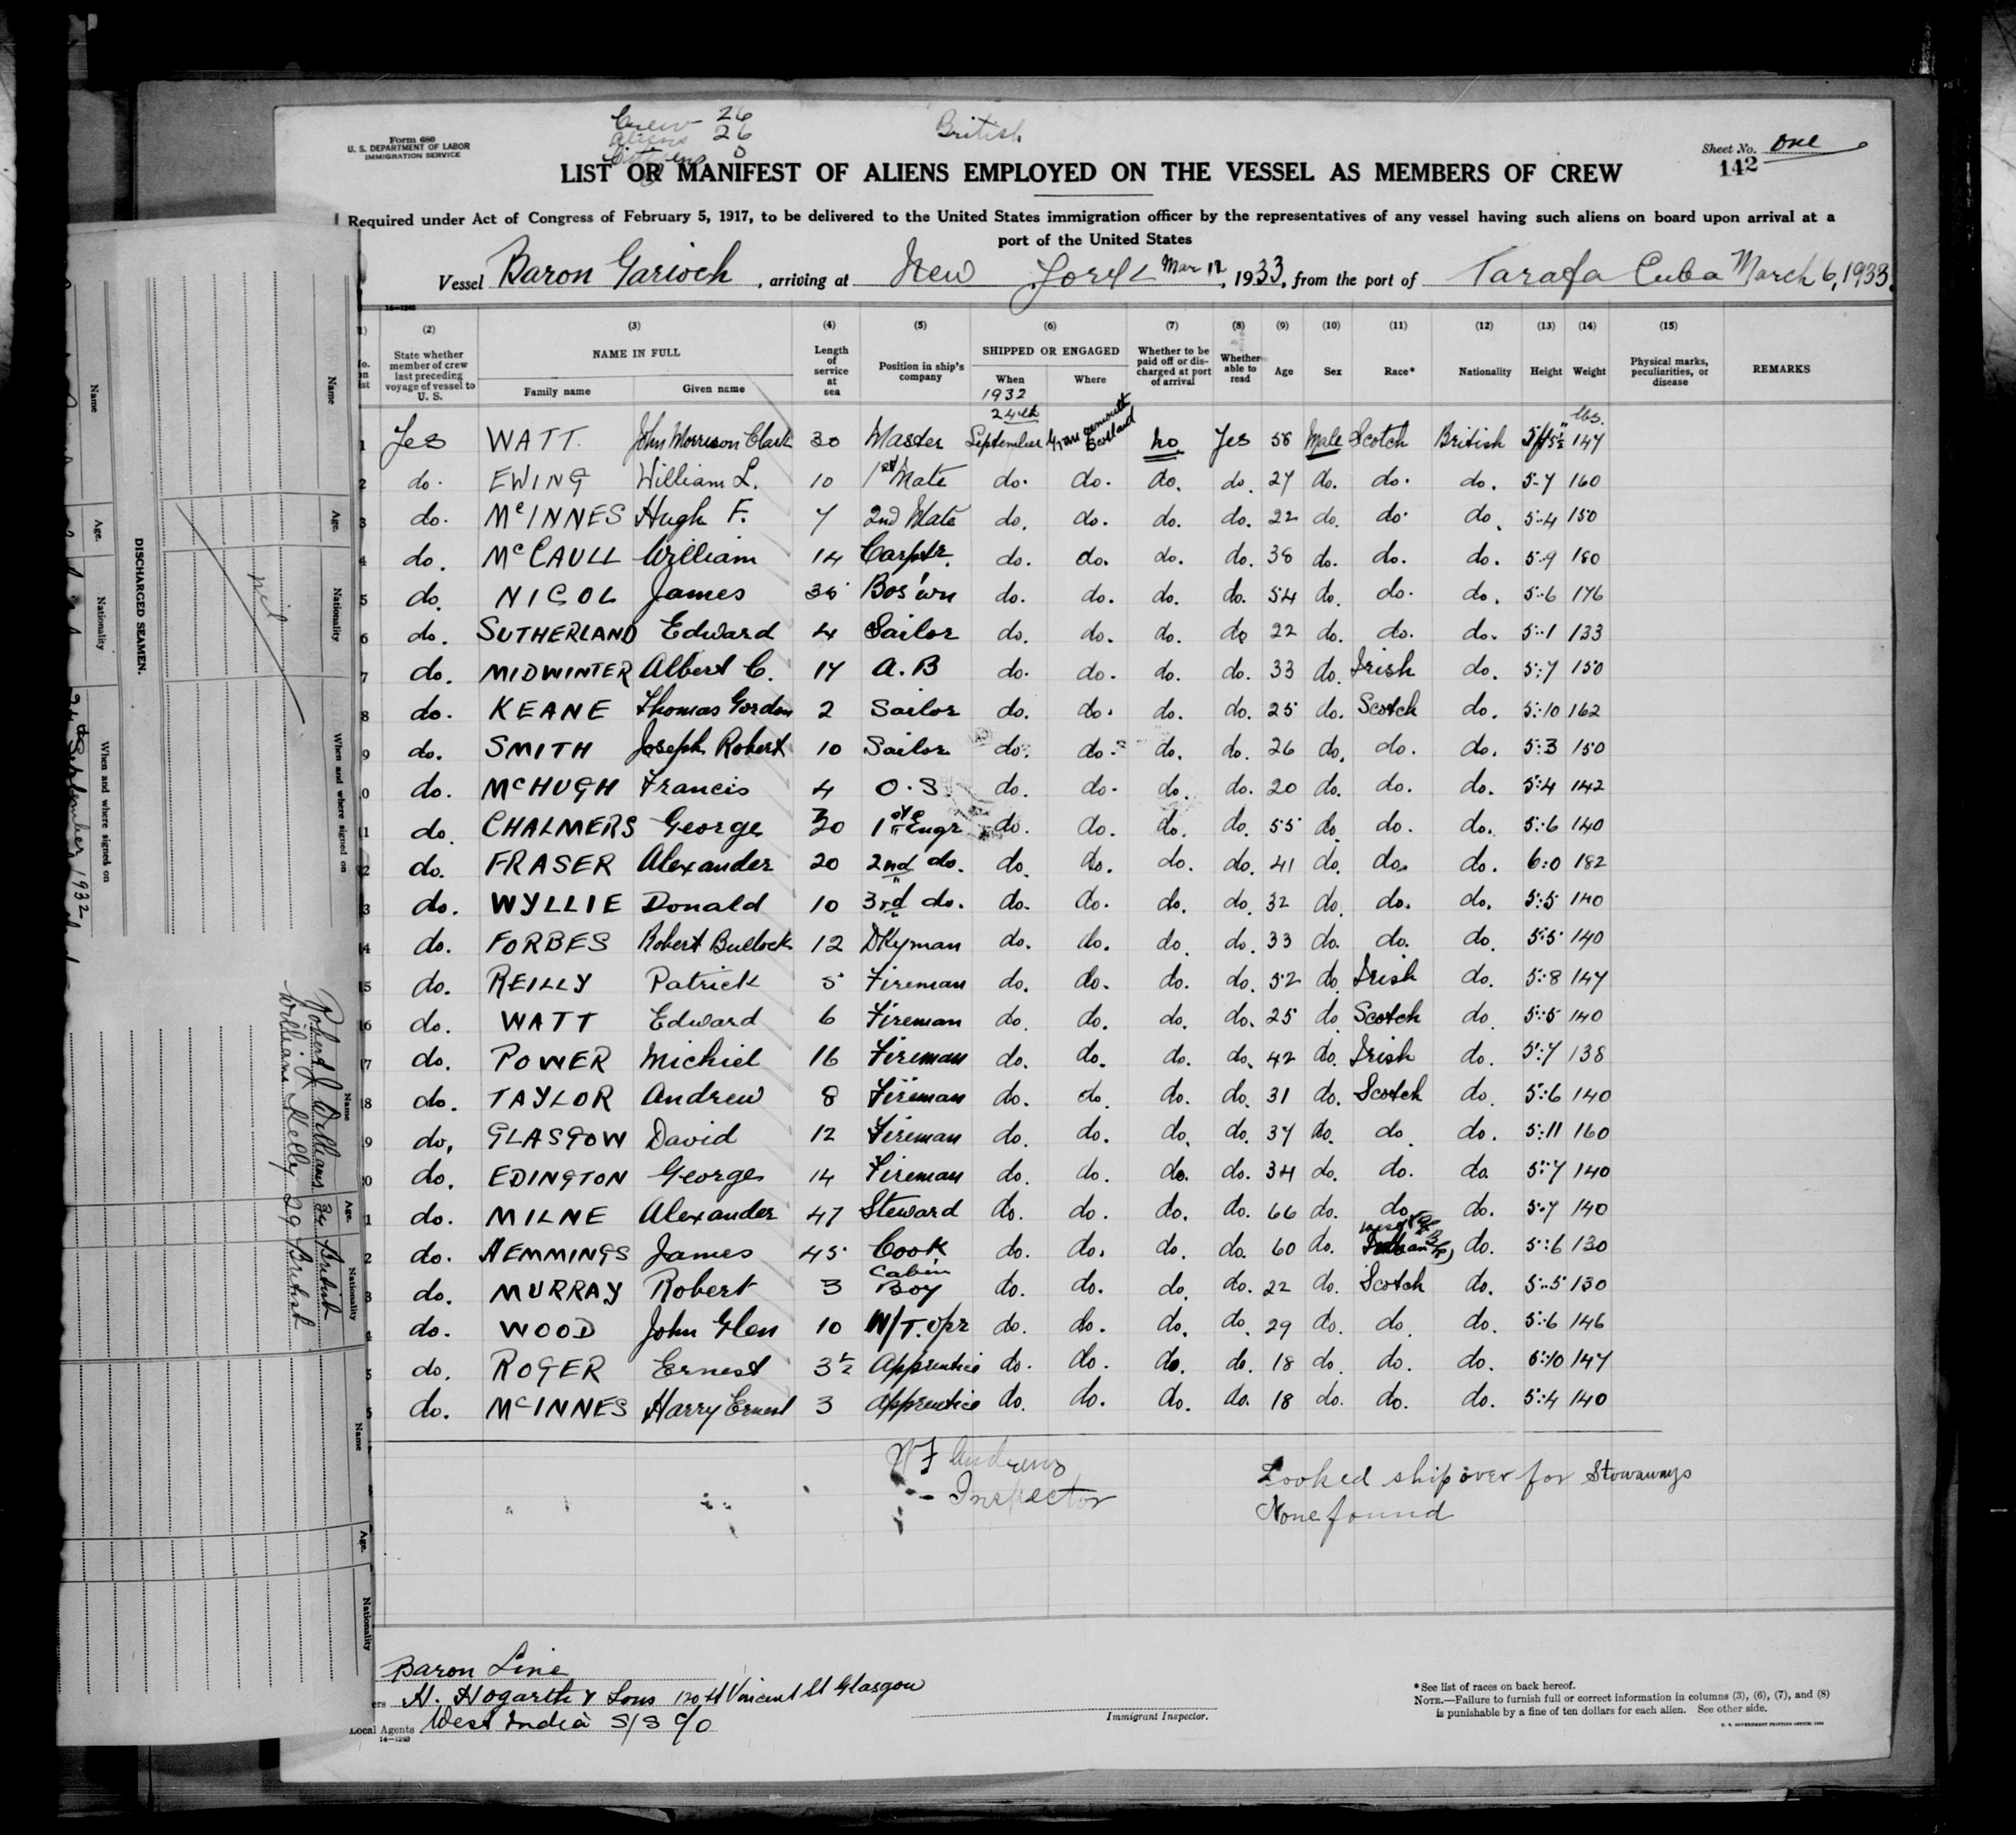 Crew 26
Aliens 26
Citizens 0
British
Form 680
U. S. DEPARTMENT OF LABOR
IMMIGRATION SERVICE
Sheet No. One
142
LIST OR MANIFEST OF ALIENS EMPLOYED ON THE VESSEL AS MEMBERS OF CREW
Required under Act of Congress of February 5, 1917, to be delivered to the United States immigration officer by the representatives of any vessel having such aliens on board upon arrival at a
port of the United States
Vessel Baron Garioch, arriving at New York Mar 12, 1933, from the port of Tarafa Cuba March 6, 1933.
14-1240
(2) (3) (4) (5) (6) (7) (8) (9) (10) (11) (12) (13) (14) (15)
State whether member of crew last preceding voyage of vessel to U. S. NAME IN FULL Family name Given name Length of service at sea Position in ship's company SHIPPED OR ENGAGED When Where Whether to be paid off or discharged at port of arrival Whether able to read Age Sex Race* Nationality Height Weight Physical marks, peculiarities, or disease REMARKS
1932
24th lbs.
1 Yes WATT. John Morrison Clark 30 Master September Scotland no. Yes 58 Male Scotch British 5ft 5½" 147
2 do. EWING William L. 10 1st Mate do. do. do. do. 27 do. do. do. 5-7 160
3 do. McINNES Hugh F. 7 2nd Mate do. do. do. do. 22 do. do. do. 5-4 150
4 do. McCAULL William 14 Carptr. do. do. do. do. 38 do. do. do. 5-9 180
5 do. NICOL James 36 Bos'wn do. do. do. do. 54 do. do. do. 5-6 176
6 do. SUTHERLAND Edward 4 Sailor do. do. do. do 22 do. do. do. 5-1 133
7 do. MIDWINTER Albert C. 17 A.B do. do. do. do. 33 do. Irish do. 5:7 150
8 do. KEANE Thomas Gordon 2 Sailor do. do. do. do. 25 do. Scotch do. 5:10 162
9 do. SMITH Joseph Robert 10 Sailor do. do. do. do. 26 do. do. do. 5:3 150
0 do. McHUGH Francis 4 O.S. do. do. do. do. 20 do. do. do. 5:4 142
1 do. CHALMERS George 30 1st Engr do. do. do. do. 55 do. do. do. 5:6 140
2 do. FRASER Alexander 20 2nd do. do. do. do. do. 41 do. do. do. 6:0 182
3 do. WYLLIE Donald 10 3rd do. do. do. do. do. 32 do. do. do. 5:5 140
4 do. FORBES Robert Bullock 12 DKyman do. do. do. do. 33 do. do. do. 5:5 140
5 do. REILLY Patrick 5 Fireman do. do. do. do. 52 do. Irish do. 5:8 147
6 do. WATT Edward 6 Fireman do. do. do. do. 25 do. Scotch do. 5:5 140
7 do. POWER Michiel 16 Fireman do. do. do. do. 42 do. Irish do. 5:7 138
8 do. TAYLOR Andrew 8 Fireman do. do. do. do. 31 do. Scotch do. 5:6 140
9 do, GLASGOW David 12 Fireman do. do. do. do. 37 do. do. do. 5:11 160
0 do. EDINGTON George 14 Fireman do. do. do. do. 34 do. do. do. 5:7 140
1 do. MILNE Alexander 47 Steward do. do. do. do. 66 do. do. do. 5:7 140
2 do. HEMMINGS James 45 Cook do. do. do. do. 60 do. do. 5:6 130
3 do. MURRAY Robert 3 Cabin Boy do. do. do. do. 22 do. Scotch do. 5:5 130
4 do. WOOD John Glen 10 W/T.opr do. do. do. do. 29 do. do. do. 5:6 146
5 do. ROGER Ernest 3½ Apprentice do. do. do. do. 18 do. do. do. 5:10 147
do. McINNES Harry Ernest 3 Apprentice do. do. do. do. 18 do. do. do. 5:4 140
W F Andrews
- Inspector
Looked ship over for Stowaways
None found
Baron Line
H. Hogarth & Sons 120 St Vincent St Glasgow
Local Agents West India S/S C/o
14-1240
Immigrant Inspector.
*See list of races on back hereof.
NOTE.—Failure to furnish full or correct information in columns (3), (6), (7), and (8)
is punishable by a fine of ten dollars for each alien. See other side.
U. S. GOVERNMENT PRINTING OFFICE
Name
Age.
Nationality
When and where signed on
24th September 1932
DISCHARGED SEAMEN.
Name
Age.
Nationality
When and where signed on
nil
Name
Age.
Nationality
Robert J Williams 34 British
William Kelly 29 British
Name
Age.
Nationality